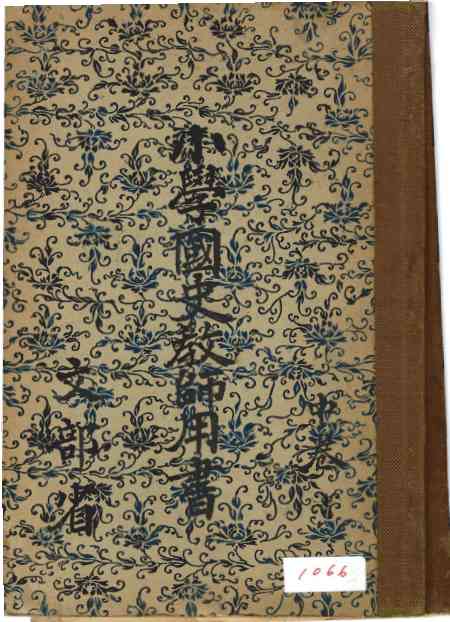 中卷
小學國史教師用書
文部省
1066